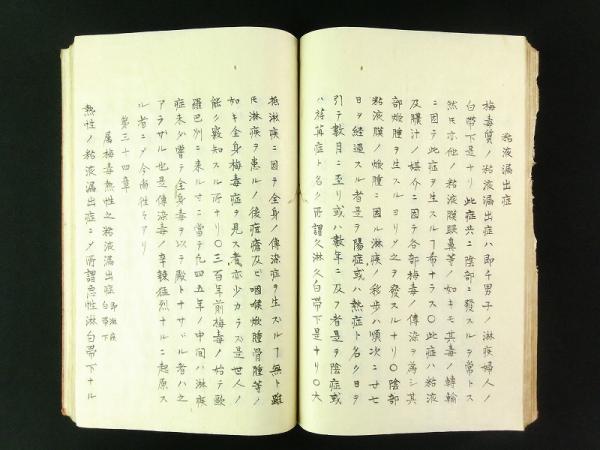 粘液漏出症
梅毒質ノ粘液漏出症ハ即チ男子ノ淋疾婦人ノ
白帯下是ナリ此症共ニ陰部ニ發スルヲ常トス
然氏亦他ノ粘液膜眼鼻等ノ如キモ其毒ノ轉輸
ニ因テ此症ヲ生スルヿ希ナラス〇此症ハ粘液
及膿汁ノ媒介ニ因テ各部梅毒ノ傳染ヲ為シ其
部焮腫ヲ生スルヨリ之ヲ發スルナリ〇陰部
粘液膜ノ焮腫ニ因ル淋疾ノ稔歩ハ順次ニ廿七
日ヲ經過スル者是ヲ陽症或ハ熱症ト名ク日ヲ
引テ數月ニ至リ或ハ數年ニ及フ者是ヲ陰症或
ハ痿弱症ト名ク所謂久淋久白帯下是ナリ〇大
抵淋疾ニ因テ全身ノ傳染症ヲ生スルヿ無ト雖
氏淋疾ヲ患ルノ後痘瘡及ヒ咽喉焮腫骨腫等ノ
如キ全身梅毒症ヲ見ス者亦少カラス是世人ノ
能ク竅知スル所ナリ〇三百年前梅毒ノ始テ歐
羅巴列ニ来ルヤニ當テ九四五年ノ中间ハ淋疾
症未タ曽テ全身毒ヲ以テ殿トナサヾル者ハ之
アラサル也是傳染毒ノ辛辣猛烈ナルニ起原ス
ル者ニメ今尚性モアリ
第三十四章
属梅毒熱性之粘液漏出症 即淋疾 白帯下
熱性ノ粘液漏出症ニメ所謂惡性淋白帯下ナル